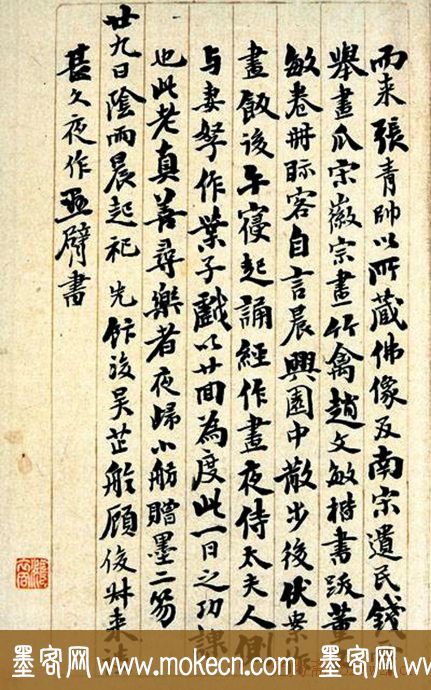 而来張青帥以所蔵佛像及南宗遺民錢
舉畫瓜宋徽宗畫竹禽趙文敏楷書跋董
敏卷冊眎客自言晨興園中散步後伏案
畫飯後午寢起誦經作畫夜侍太夫人側
与妻孥作葉子戲以廿回為度此一日之功課
也此老真善尋樂者夜歸小舫贈墨二笏
廿九日陰雨晨起祀先飰後吴芷舲顧俊叔来
甚久夜作臂書
墨客网 www.mokecn.com 墨客网